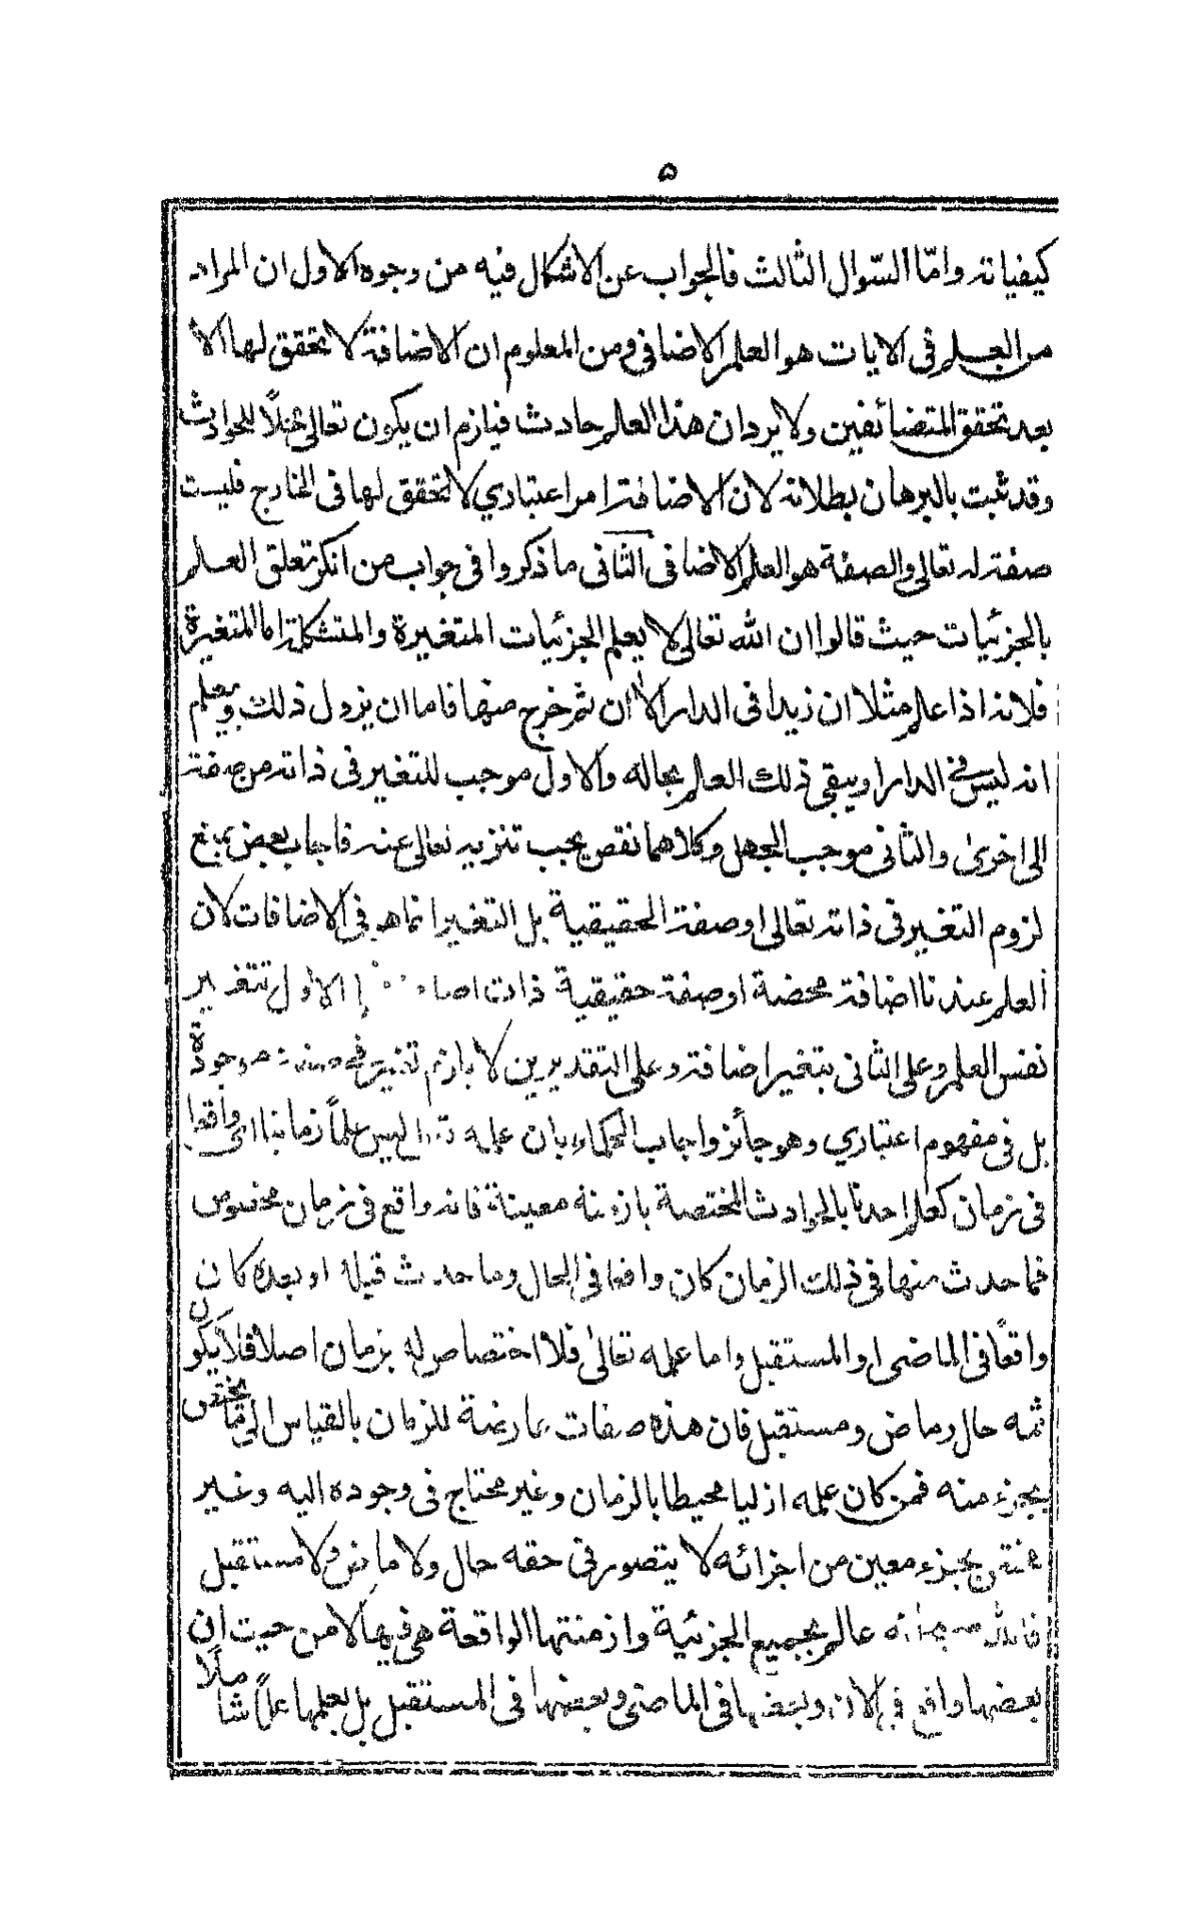 ۵
كيفياته واما السوال الثالث فالجواب عن الاشكال فيه من وجوه الاول ان المراد
من العلم فى الايات هو العلم الاضافى ومن المعلوم ان الاضافة لا تحقق لها الا
بعد تحقق المتضائفين ولا يرد ان هذا العلم حادث فيلزم ان يكون تعالى محلاً للحوادث
وقد ثبت بالبرهان بطلانه لان الاضافة امر اعتباري لا تحقق لها فى الخارج فليست
صفة له تعالى والصفة هو العلم الاضافى الثانى ما ذكروا فى جواب من انكر تعلق العلم
بالجزئيات حيث قالوا ان الله تعالى لا يعلم الجزئيات المتغيرة والمتشكلة اما المتغيرة
فلانه اذا علم مثلا ان زيدا فى الدار الان ثم خرج منها فاما ان يزول ذلك ويعلم
انه ليس فى الدار او يبقى ذلك العلم بحاله والاول موجب للتغير فى ذاته من صفة
الى اخرى والثانى موجب الجهل وكلاهما نقص يجب تنزيه تعالى عنه فاجاب بعض بمنع
لزوم التغير فى ذاته تعالى او صفته الحقيقية بل التغير انما هو فى الاضافات لان
العلم عندنا اضافة محضة او صفة حقيقية ذات الاول تتغير
نفس العلم وعلى الثانى يتغير اضافة وعلى التقديرين لا يلزم تغير فى صفة موجودة
بل فى مفهوم اعتباري وهو جائز واجاب الحكماء بان علمه ليس علماً زمانيا اى واقعا
فى زمان كعلم احدنا بالحوادث المختصة بازمنة معينة فانه واقع فى زمان مخصوص
فما حدث منها فى ذلك الزمان كان واقعا فى الحال وما حدث قبله او بعده كان
واقعاً فى الماضى او المستقبل واما علمه تعالى فلا اختصاص له بزمان اصلا فلا يكون
ثمه حال وماض ومستقبل فان هذه صفات عارضة للزمان بالقياس الى ما يختص
بجزء منه فمن كان علمه ازليا محيطا بالزمان وغير محتاج فى وجوده اليه وغير
مختص بجزء معين من اجزائه لا يتصور فى حقه حال ولا ماض ولا مستقبل
فالله سبحانه عالم بجميع الجزئية وازمنتها الواقعة هى فيها لا من حيث ان
بعضها واقع فى الان وبعضها فى الماضى وبعضها فى المستقبل بل يعلمها علماً شاملا